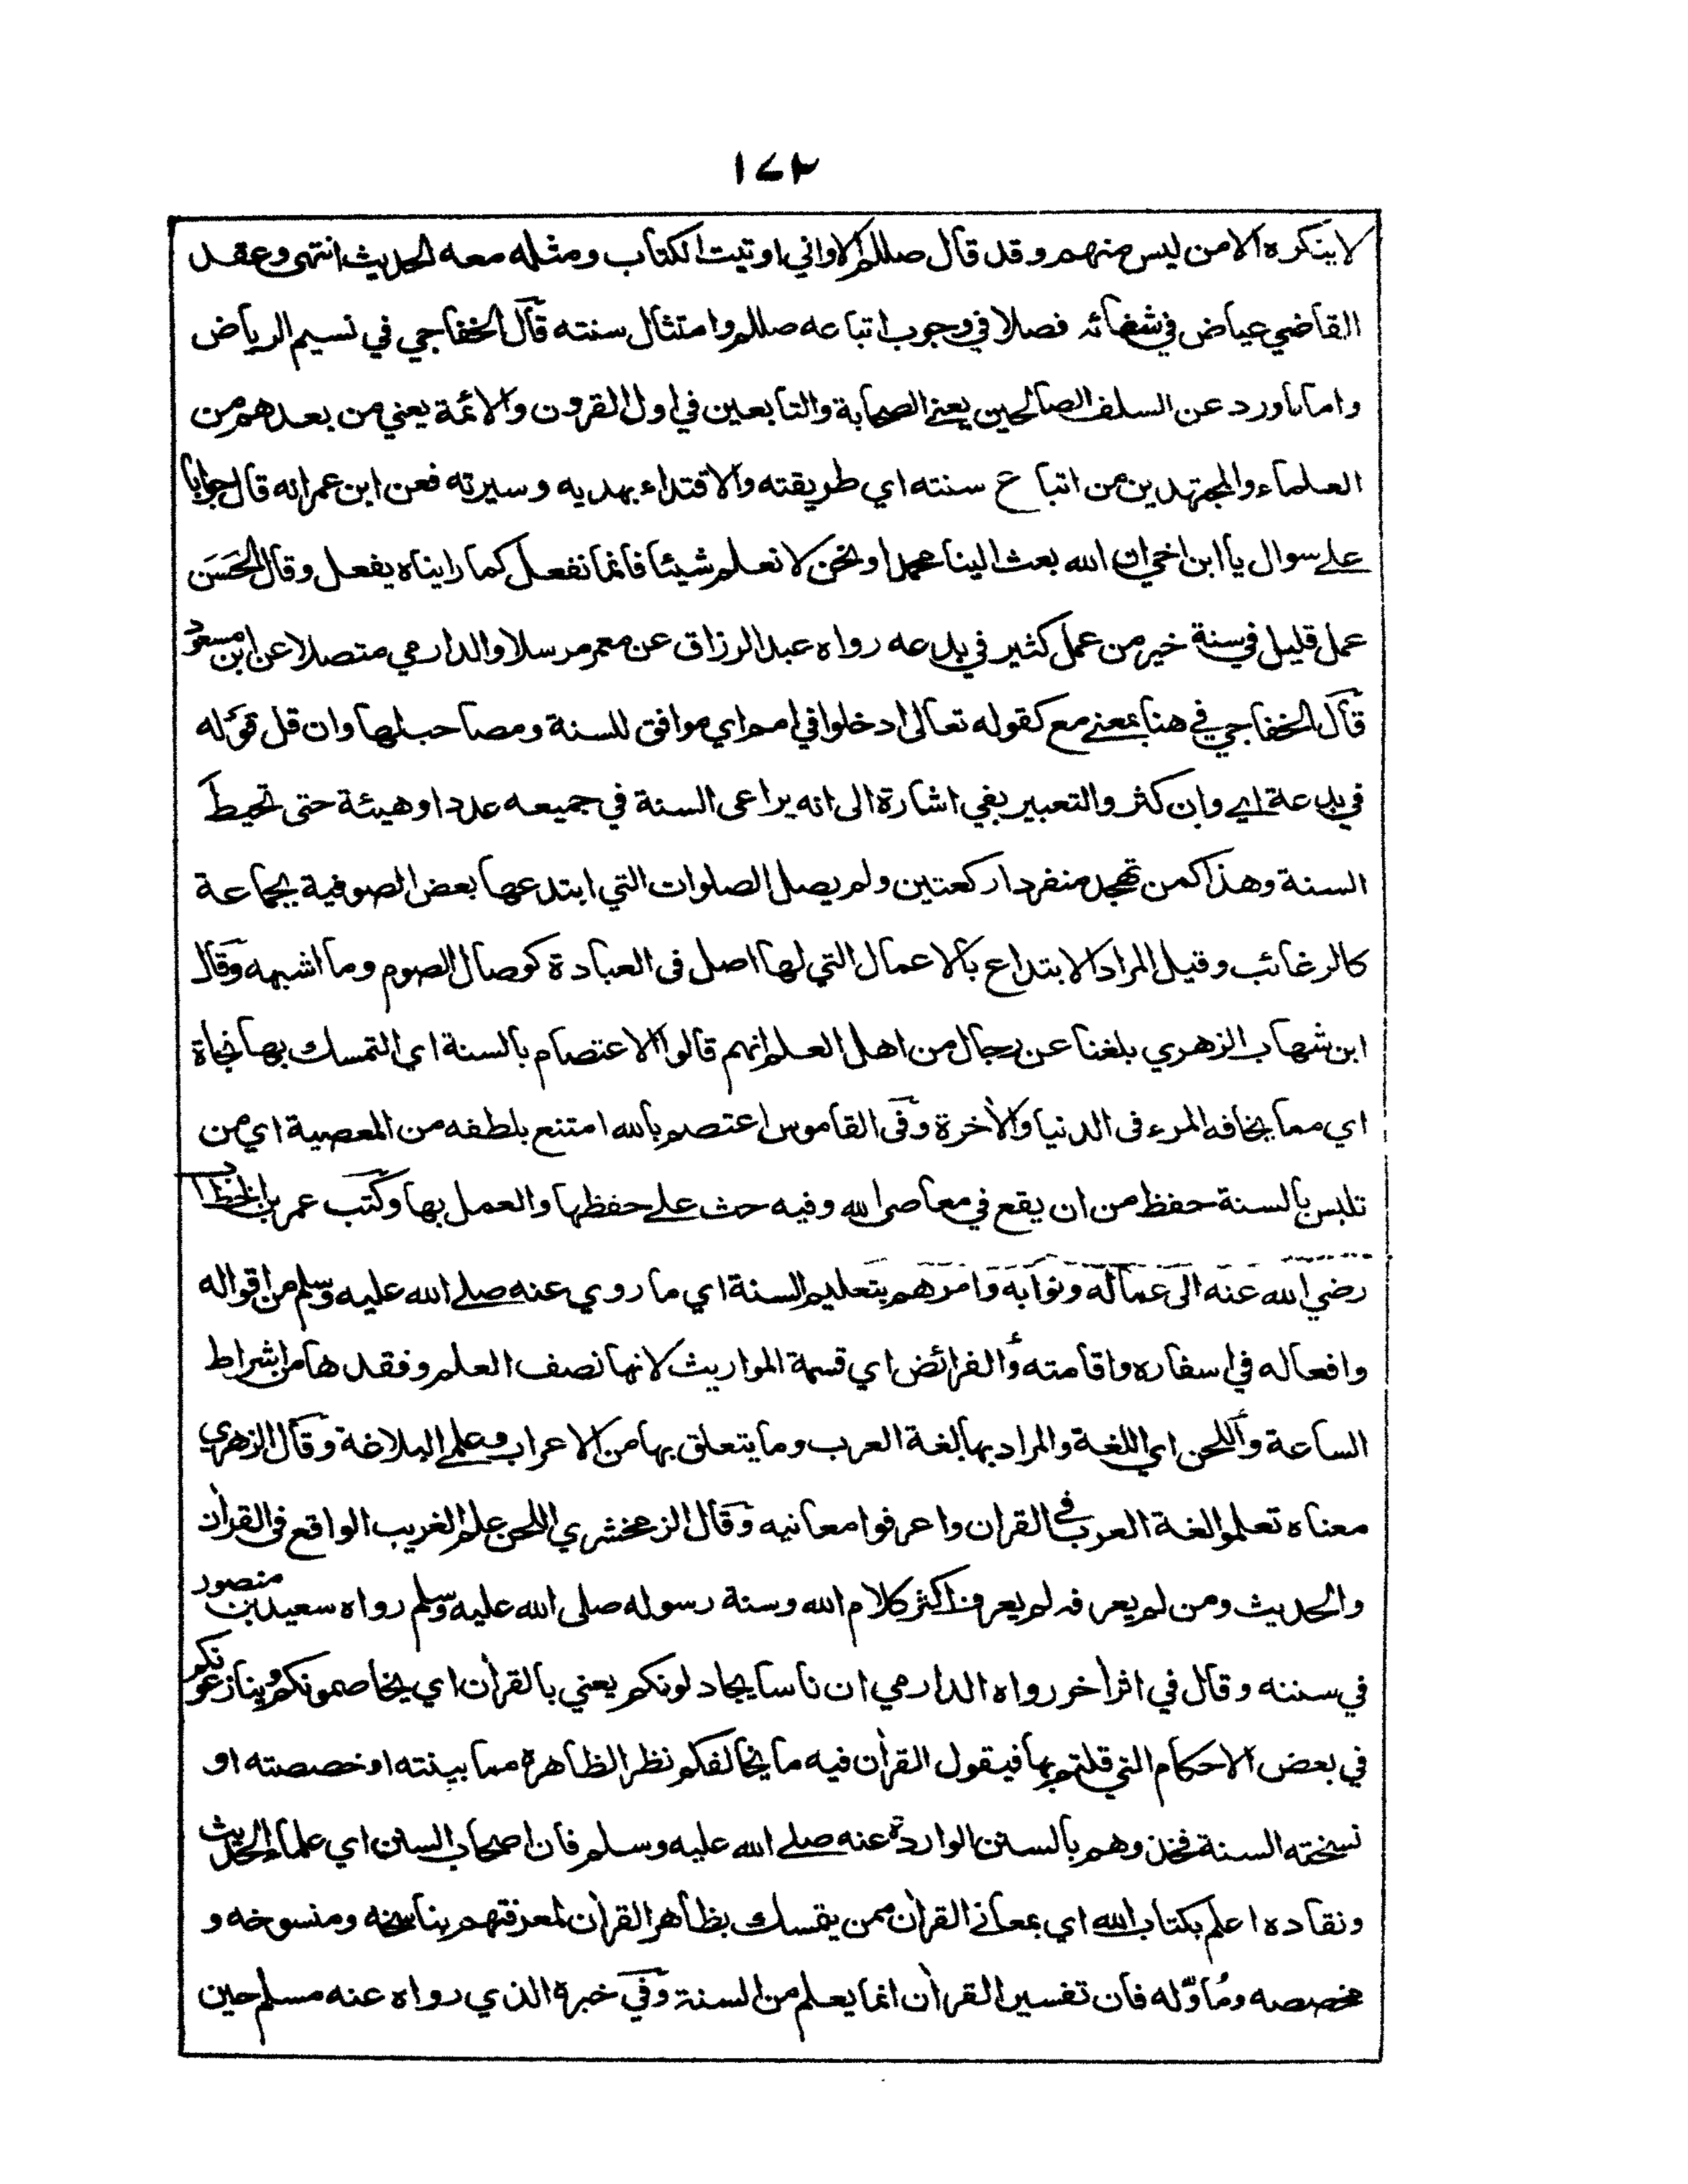 ١٧٢
لا ينكره الا من ليس منهم وقد قال صللم الا واني اوتيت الكتاب ومثله معه الحديث انتهى وعقد
القاضي عياض في شفائه فصلا في وجوب اتباعه صللم وامتثال سنته قال الخفاجي في نسيم الرياض
واما ما ورد عن السلف الصالحين يعني الصحابة والتابعين في اول القرون والائمة يعني من بعدهم من
العلماء والمجتهدين من اتباع سنته اي طريقته والاقتداء بهديه وسيرته فعن ابن عمر انه قال جوابا
على سوال يا ابن اخي ان الله بعث الينا محمدا ونحن لا نعلم شيئا فانما نفعل كما رايناه يفعل وقال الحسن
عمل قليل في سنة خير من عمل كثير في بدعه رواه عبد الرزاق عن معمر مرسلا والدارمي متصلا عن ابن مسعود
قال الخفاجي في هنا بمعنى مع كقوله تعالى ادخلوا في امم اي موافق للسنة ومصاحب لها وان قل قوله
في بدعة اي وان كثر والتعبير بفي اشارة الى انه يراعى السنة في جميعه عددا وهيئة حتى تحيط
السنة وهذا كمن تهجد منفردا ركعتين ولم يصل الصلوات التي ابتدعها بعض الصوفية بجماعة
كالرغائب وقيل المراد الابتداع بالاعمال التي لها اصل فى العبادة كوصال الصوم وما اشبهه وقال
ابن شهاب الزهري بلغنا عن رجال من اهل العلم انهم قالوا الاعتصام بالسنة اي التمسك بها نجاة
اي مما يخافه المرء فى الدنيا والاخرة وفى القاموس اعتصم بالله امتنع بلطفه من المعصية اي من
تلبس بالسنة حفظ من ان يقع في معاصي الله وفيه حث على حفظها والعمل بها وكتب عمر بن الخطاب
رضي الله عنه الى عماله ونوابه وامرهم بتعليم السنة اي ما روي عنه صلى الله عليه وسلم من اقواله
وافعاله في اسفاره واقامته والفرائض اي قسمة المواريث لانها نصف العلم وفقدها من اشراط
الساعة واللحن اي اللغة والمراد بها لغة العرب وما يتعلق بها من الاعراب وعلم البلاغة وقال الزهري
معناه تعلموا لغة العرب في القران واعرفوا معانيه وقال الزمخشري اللحن علم الغريب الواقع فى القران
والحديث ومن لم يعرفه لم يعرف اكثر كلام الله وسنة رسوله صلى الله عليه وسلم رواه سعيد بن منصور
في سننه وقال في اثر اخر رواه الدارمي ان ناسا يجادلونكم يعني بالقران اي يخاصمونكم وينازعونكم
في بعض الاحكام التي قلتم بها فيقول القران فيه ما يخالفكم نظر الظاهره مما بينته او خصصته او
نسخته السنة فخذوهم بالسنن الواردة عنه صلى الله عليه وسلم فان اصحاب السنن اي علماء الحديث
ونقاده اعلم بكتاب الله اي بمعاني القران ممن يتمسك بظاهر القران لمعرفتهم بناسخه ومنسوخه و
مخصصه ومُاوّله فان تفسير القران انما يعلم من السنة وفي خبره الذي رواه عنه مسلم حين